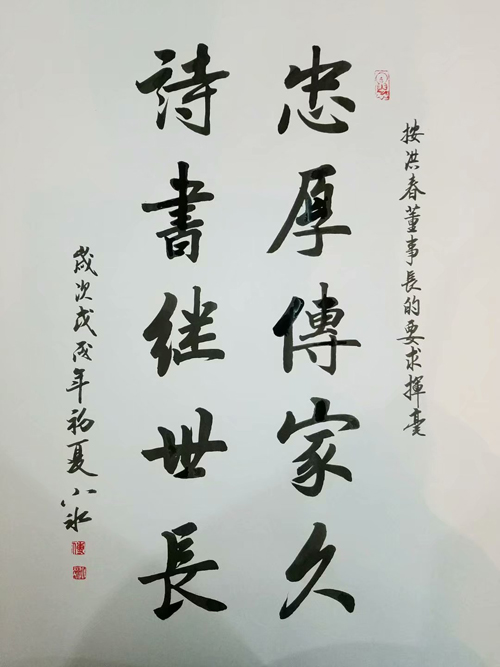 按洪春董事長的要求揮毫
忠厚傳家久
詩書继世長
歲次戊戌年初夏小冰